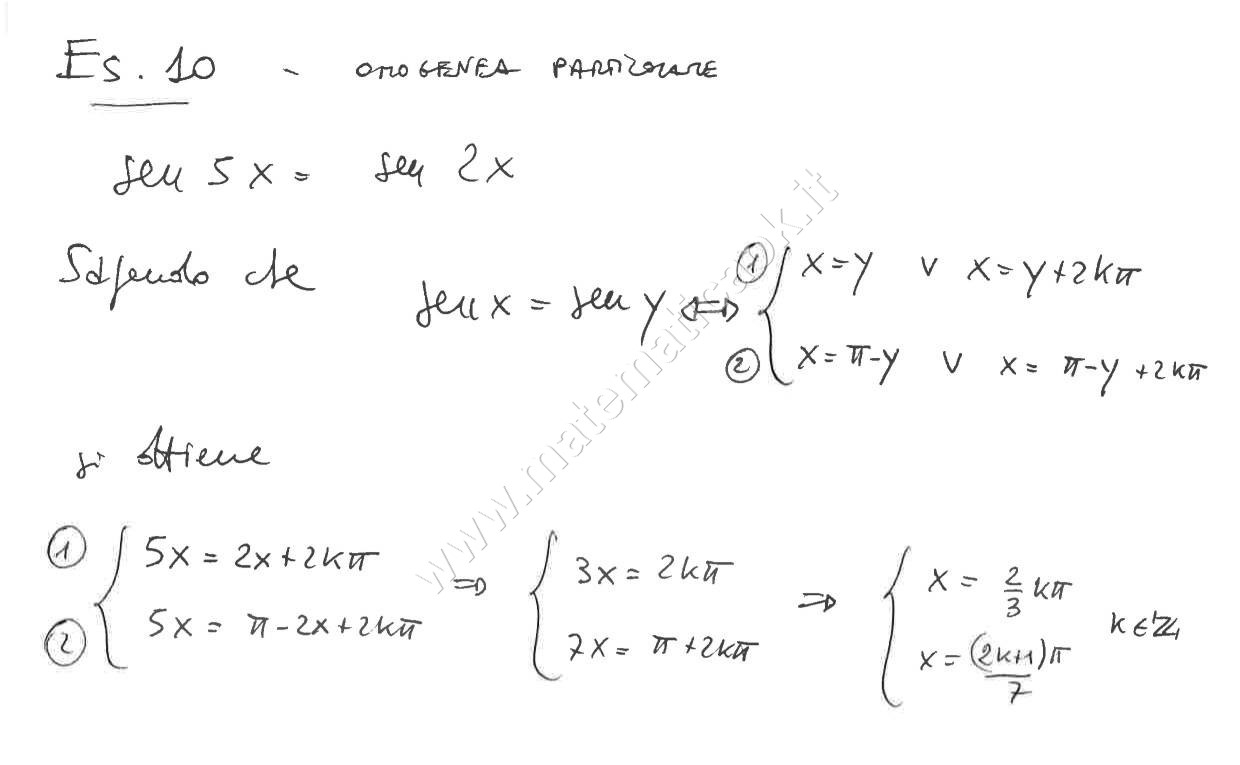 Es. 10 - OMOGENEA PARTICOLARE
sen 5x = sen 2x
Sapendo che
sen x = sen y ⇔ { ① x=y ∨ x=y+2kπ
② x=π-y ∨ x=π-y+2kπ
si ottiene
① { 5x = 2x+2kπ ⇒ { 3x = 2kπ ⇒ { x = 2/3 kπ
② 5x = π-2x+2kπ 7x = π+2kπ x = (2k+1)π/7 k∈ℤ
www.matematicaok.it